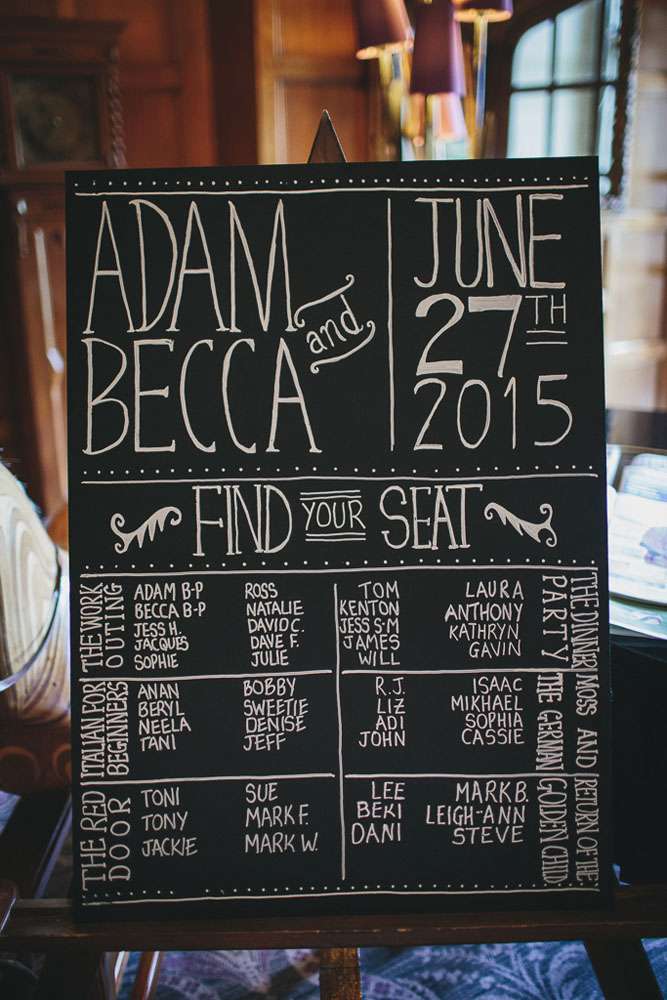 ADAM
and
BECCA
JUNE
27TH
2015
FIND YOUR SEAT
THE WORK
OUTING
ADAM B-P
BECCA B-P
JESS H.
JACQUES
SOPHIE
ROSS
NATALIE
DAVID C.
DAVE F.
JULIE
TOM
KENTON
JESS S-M
JAMES
WILL
LAURA
ANTHONY
KATHRYN
GAVIN
THE DINNER
PARTY
ITALIAN FOR
BEGINNERS
ANAN
BERYL
NEELA
TANI
BOBBY
SWEETIE
DENISE
JEFF
R.J.
LIZ
ADI
JOHN
ISAAC
MIKHAEL
SOPHIA
CASSIE
MOSS AND
THE GERMAN
THE RED
DOOR
TONI
TONY
JACKIE
SUE
MARK F.
MARK W.
LEE
BEKI
DANI
MARK B.
LEIGH-ANN
STEVE
RETURN OF THE
GOLDEN CHILD